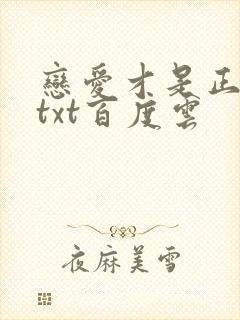 戀愛才是正
txt百度雲
夜麻美雪